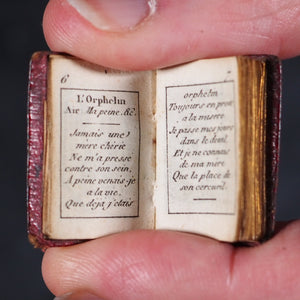 6
L'Orphelin
Air Ma peine &c.
Jamais une
mère chérie
Ne m'a pressé
contre son sein,
A peine venais-je
a la vie,
Que déja j'étais
orphelin
Toujours en proie
a la misere
Je passe mes jours
dans le deuil
Et je ne connais
de ma mère
Que la place de
son cercueil.